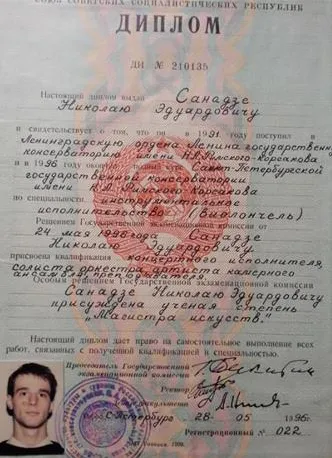 СОЮЗ СОВЕТСКИХ СОЦИАЛИСТИЧЕСКИХ РЕСПУБЛИК
ДИПЛОМ
ДИ № 210135
Настоящий диплом выдан Санадзе
Николаю Эдуардовичу
в свидетельство о том, что он в 1991 году поступил в
Ленинградскую ордена Ленина государственную
консерваторию имени Н.А.Римского-Корсакова
и в 1996 году окончил Санкт-Петербургской
государственной консерватории
имени Н.А. Римского-Корсакова
по специальности инструментальное
исполнительство (Виолончель)
Решением Государственной экзаменационной комиссии от
24 мая 1996 года Санадзе
Николаю Эдуардовичу
присвоена квалификация концертного исполнителя,
солиста оркестра, артиста камерного
ансамбля, преподавателя.
Особым решением Государственной экзаменационной комиссии
Санадзе Николаю Эдуардовичу
присуждена ученая степень
„Магистра искусств.”
Настоящий диплом дает право на самостоятельное выполнение всех
работ, связанных с полученной квалификацией и специальностью.
Председатель Государственной
экзаменационной комиссии
Ректор
город С-Петербург 28. 05 1996г.
Регистрационный № 022